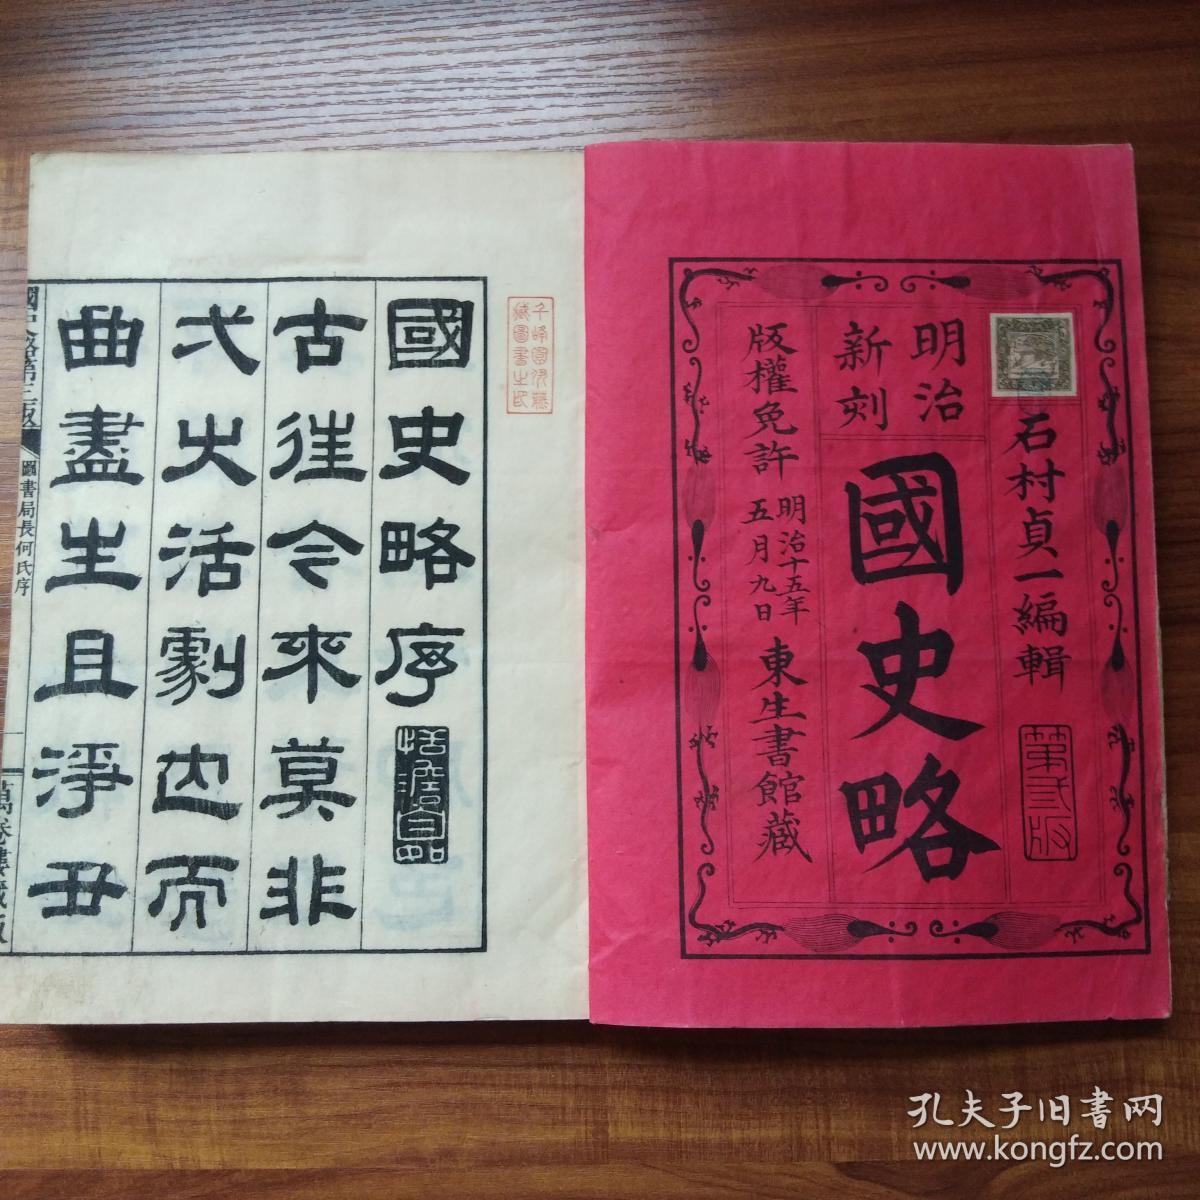 石村貞一編輯
第三版
明治
新刻
國史略
版權免許
明治十五年
五月九日
東生書館藏
國史略序
古往今來莫非
弌大活劇也而
曲盡生旦淨丑
國史略第三版
圖書局長何氏序
一
萬卷樓藏版
孔夫子旧书网
www.kongfz.com